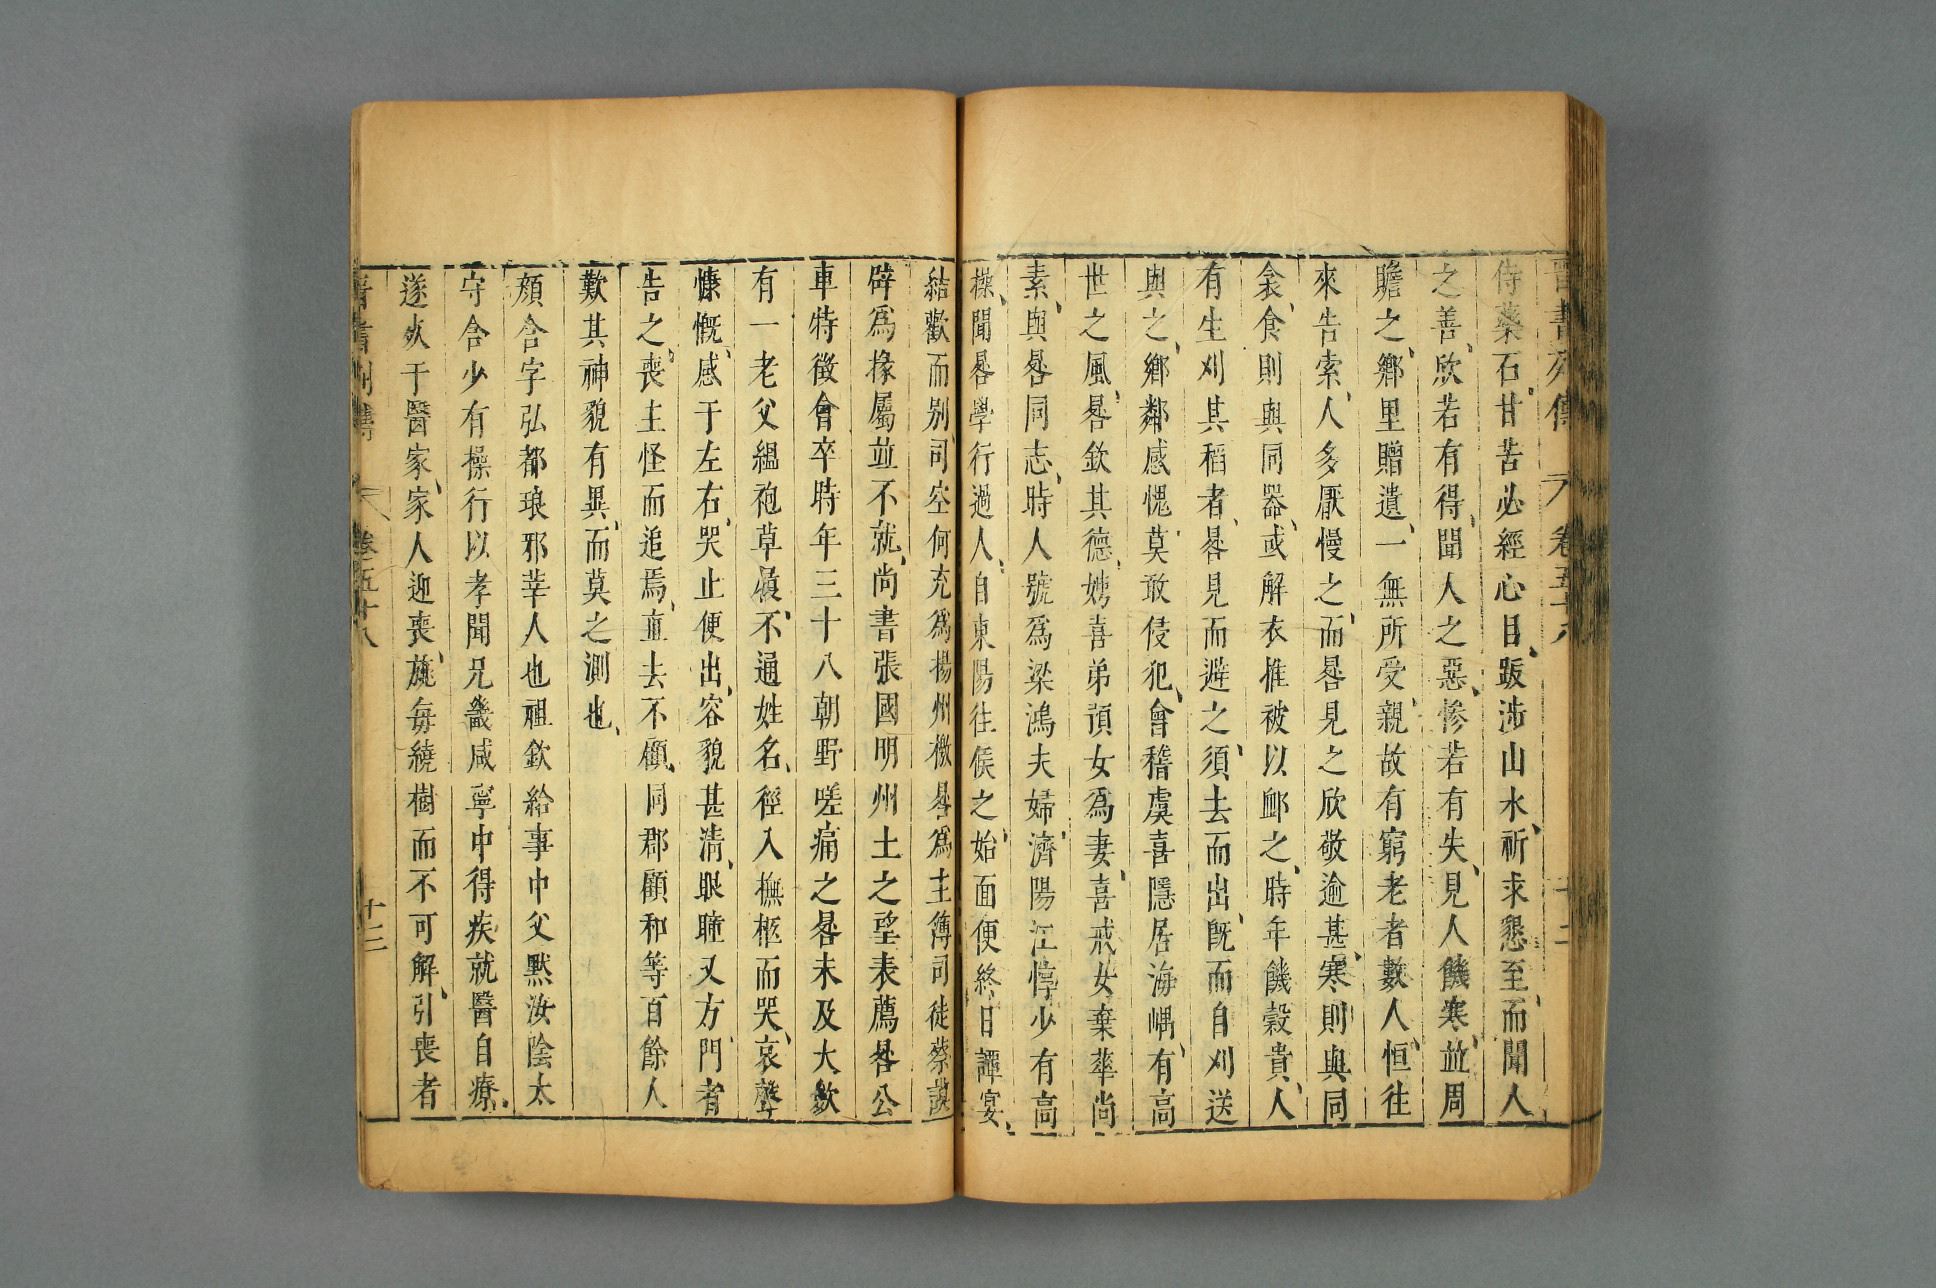 晉書列傳 卷五十八 十二
侍藥石甘苦必經心目跋涉山水祈求懇至而聞人
之善欣若有得聞人之惡慘若有失見人饑寒並周
贍之鄉里贈遺一無所受親故有窮老者數人恒往
來告索人多厭慢之而晷見之欣敬逾甚寒則與同
衾食則與同器或解衣推被以䘏之時年饑穀貴人
有生刈其稻者晷見而避之須去而出既而自刈送
與之鄉鄰感愧莫敢侵犯會稽虞喜隱居海嵎有高
世之風晷欽其德娉喜弟預女爲妻喜戒女棄華尚
素與晷同志時人號爲梁鴻夫婦濟陽江惇少有高
操聞晷學行過人自東陽往候之始面便終日譚宴
結歡而别司空何充爲揚州檄晷爲主簿司徒蔡謨
辟爲掾屬並不就尚書張國明州土之望表薦晷公
車特徵會卒時年三十八朝野嗟痛之晷未及大歛
有一老父緼袍草屨不通姓名徑入撫柩而哭哀聲
慷慨感于左右哭止便出容貌甚清眼瞳又方門者
告之喪主怪而追焉直去不顧同郡顧和等百餘人
歎其神貌有異而莫之測也
顏含字弘都琅邪莘人也祖欽給事中父默汝陰太
守含少有操行以孝聞兄畿咸寧中得疾就醫自療
遂死于醫家家人迎喪旐毎繞樹而不可解引喪者
晉書列傳 卷五十八 十二